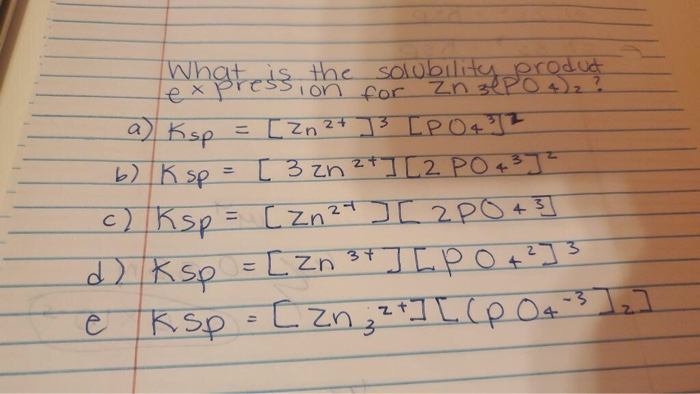 What is the solubility product
expression for Zn3(PO4)2?
a) Ksp = [Zn²⁺]³ [PO₄³]²
b) Ksp = [3Zn²⁺][2PO₄³]²
c) Ksp = [Zn²⁺][2PO₄³]
d) Ksp = [Zn³⁺][PO₄²]³
e Ksp = [Zn₃²⁺][(PO₄⁻³]₂]